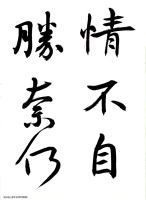 情不自
勝奈何